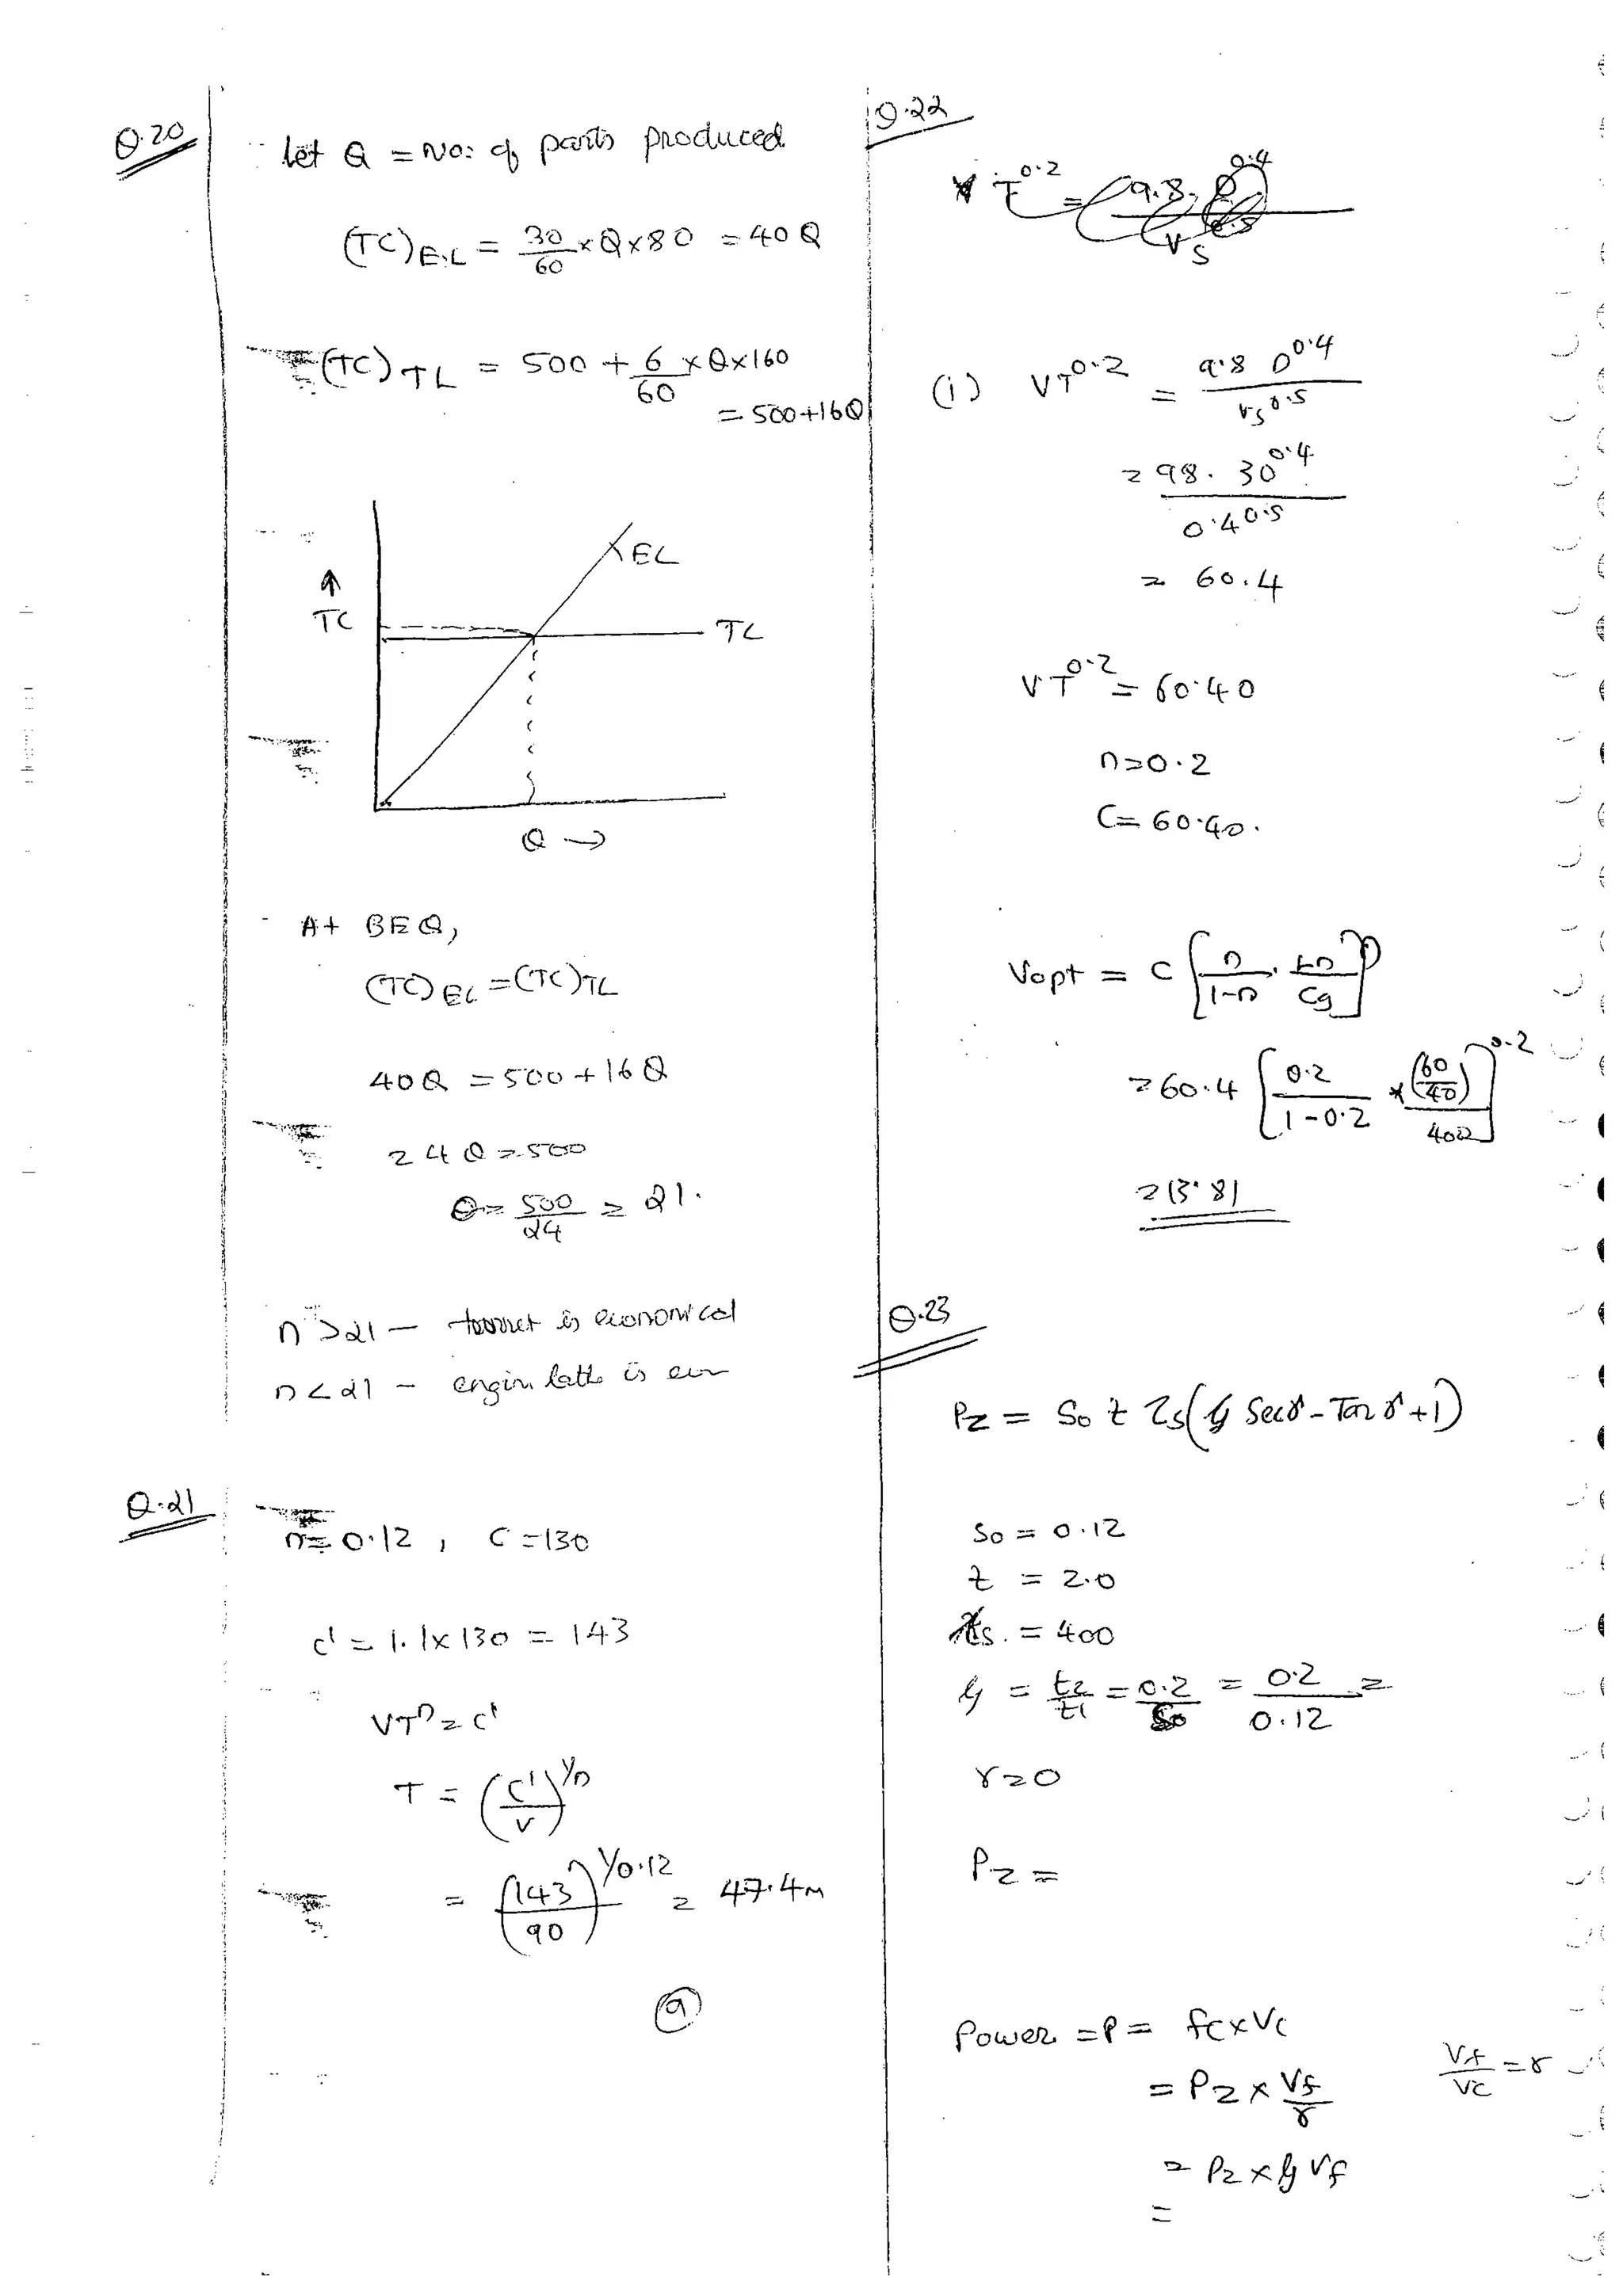 Q.20
Let Q = No: of parts produced
(TC)E.L = 30/60 × Q × 80 = 40 Q
(TC)TL = 500 + 6/60 × Q×160
= 500+16Q
↑
TC
EL
TL
Q →
At BEQ,
(TC)EL = (TC)TL
40Q = 500 + 16 Q
24 Q = 500
Q = 500/24 = 21.
n > 21 – turret is economical
n < 21 – engin lathe is
Q.21
n = 0.12 , C = 130
C' = 1.1 × 130 = 143
VTⁿ = C'
T = (C'/V)^1/n
= (143/90)^1/0.12 = 47.4m
(a)
Q.22
(i) VT^0.2 = 9.8 D^0.4 / s^0.5
= 98. 30^0.4 / 0.4^0.5
= 60.4
VT^0.2 = 60.40
n=0.2
C= 60.40.
Vopt = C [n/1-n . Lm/Cg]^n
= 60.4 [0.2/1-0.2 × (60/40)/400]^0.2
= 13.81
Q.23
Pz = So t τs(ξ Secγ – Tan γ +1)
So = 0.12
t = 2.0
τs. = 400
ξ = t2/t1 = 0.2/So = 0.2/0.12 =
γ = 0
Pz =
Power = P = fc×Vc
= Pz × Vf/r
Vf/Vc = r
= Pz × ξ Vf
=